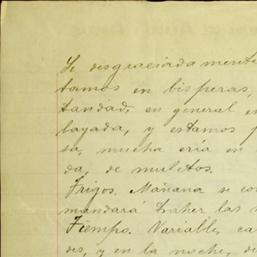 Si desgraciadamente
tamos en bisperas,
tandad, en general es
bajada, y estamos p
sa, mucha cria en
da, de muletos.
Trigos. Mañana se co
mandará traher las
Tiempo. Variable, ca
des, y en la noche, de